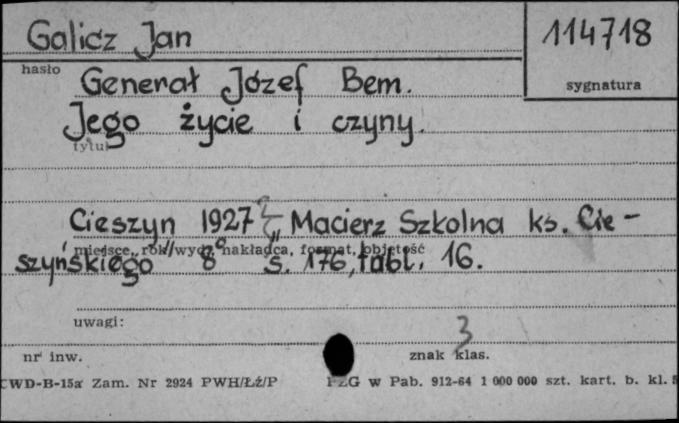 Galicz Jan
114718
hasło
sygnatura
Generał Józef Bem.
Jego życie i czyny.
tytuł
Cieszyn 1927 „Macierz Szkolna ks. Cie-
miejsce, rok wyd., nakładca, format, objętość
szyńskiego" 8° s. 176, tabl. 16.
uwagi:
3
nr inw.
znak klas.
CWD-B-15a Zam. Nr 2924 PWH/Łź/P
PZG w Pab. 912-64 1 000 000 szt. kart. b. kl. 5